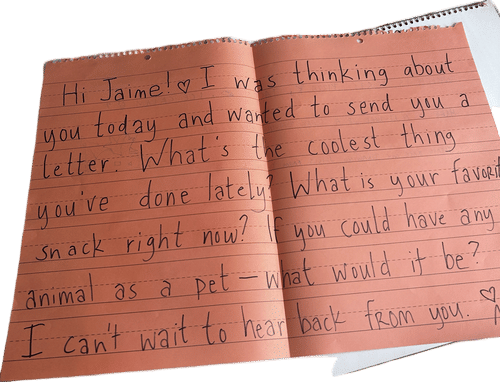 Hi Jaime! ♡ I was thinking about
you today and wanted to send you a
letter. What's the coolest thing
you've done lately? What is your favorit
snack right now? If you could have any
animal as a pet – what would it be?
I can't wait to hear back from you. ♡